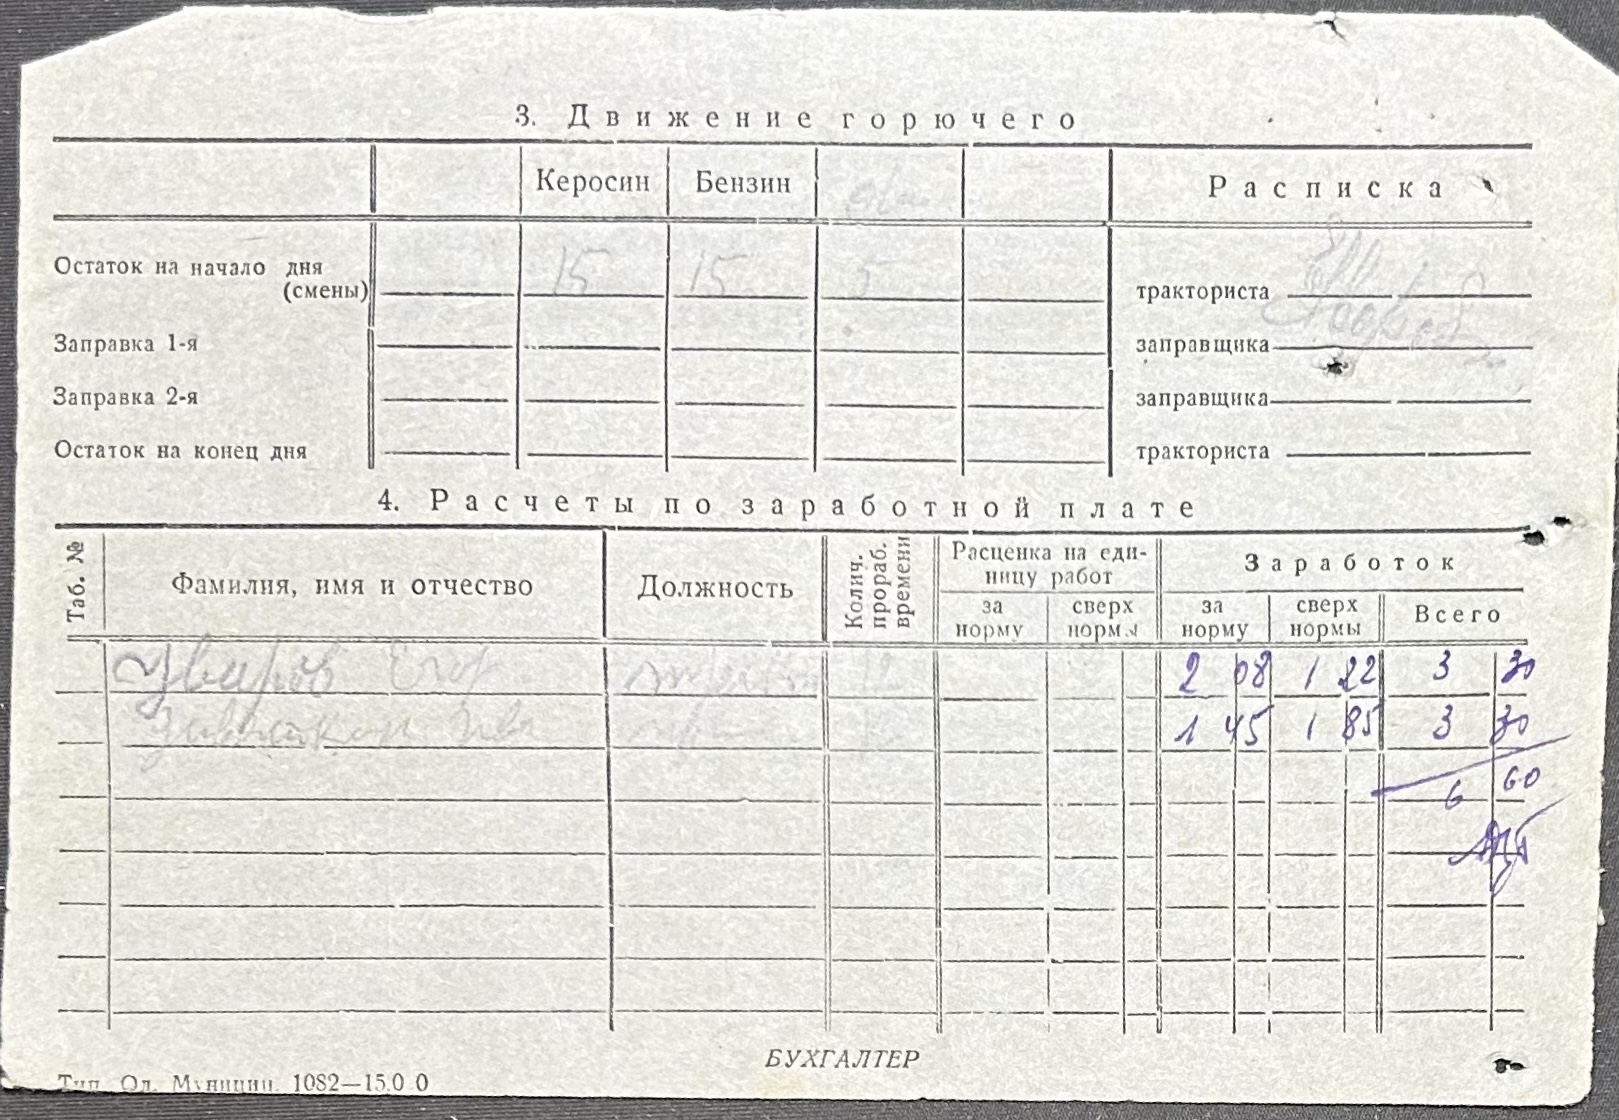 3. Движение горючего
Керосин Бензин Расписка
Остаток на начало дня
(смены) 15 15 5 тракториста
Заправка 1-я заправщика
Заправка 2-я заправщика
Остаток на конец дня тракториста
4. Расчеты по заработной плате
Таб. № Фамилия, имя и отчество Должность Колич. прораб. времени Расценка на еди-
ницу работ Заработок
за
норму сверх
нормы за
норму сверх
нормы Всего
Уваров Егор 2 08 1 22 3 30
1 45 1 85 3 30
6 60
БУХГАЛТЕР
Тип. Од. Муниции. 1082—15.0 0